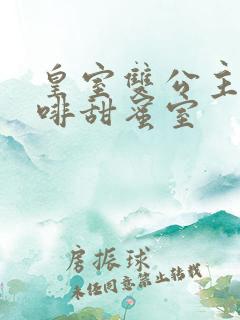 皇室雙公主
啡甜蜜室
房振球
未經同意禁止轉載